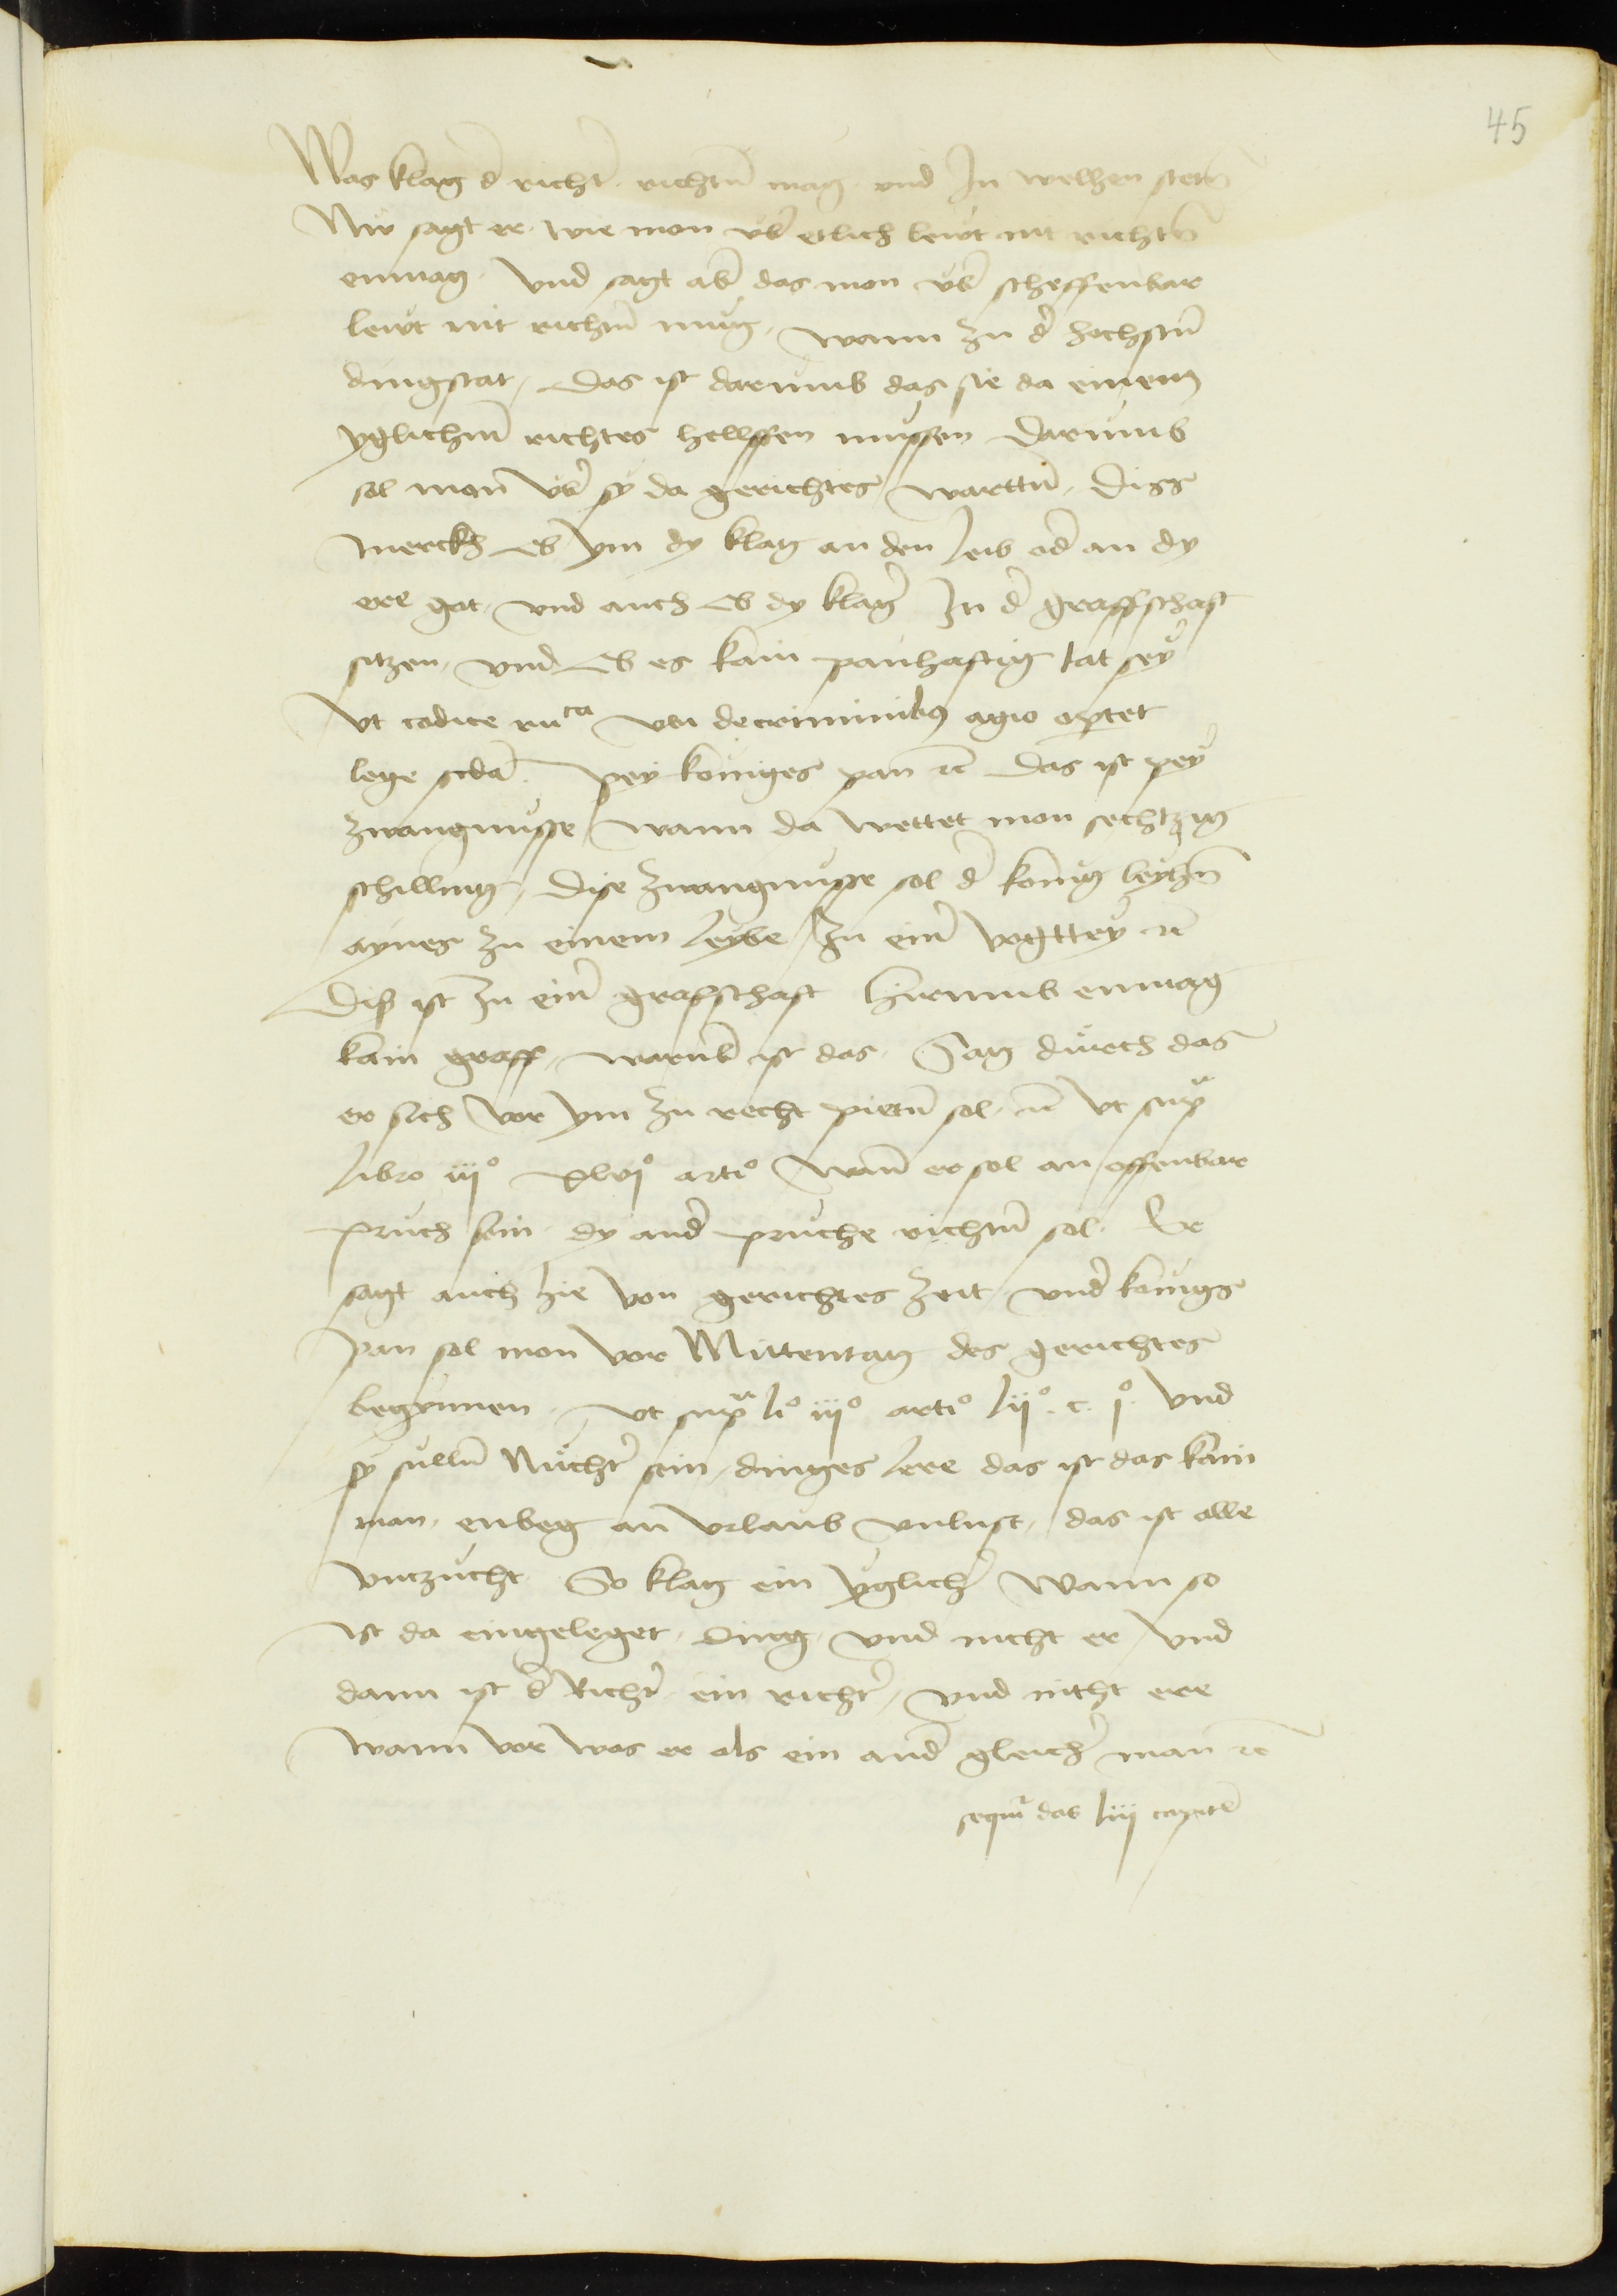 45
Was klag d' richt' richtn̄ mag und In welhen stetn̄
Nw sagt er wie mon vb' etlich lewt nit richtn̄
enmag Vnd sagt ab' das mon vb' scheffenbar
lewt nit richtn̄ mug, wann zu d' hochstn̄
dingstat, Das ist darumb das sie da einem
yglichm̄ richtes hellffen mussen Darumb
sol mon vb' sy da gerichtes warttn̄, Diss
merckh ob ym dy klag an den leib od' an dy
ere gat, vnd auch ob dy klag' In d' graffschaft
sitzen, vnd ob es kain panhaftig tat sey
Vt codice ru^ca vbi de criminibꝰ agio optet
lege scdā. Pey koniges pan ꝛc̄ Das ist pey
zwangnusse wann da wettet mon sechtzig
schilling, Dise zwangnusse sol d' konig leyhn̄
aynes zu einem leybe, Zu ein' vogttey ꝛc̄
Diß ist zu ein' grafschaft Hirumb enmag
kain graff, warūb ist das, Sag durch das
er sich vor ym zu recht pietn̄ sol ꝛc̄ Vt sup^a
libro iij° xlvj° arti° Wan̄ er sol an offenbar
pruch sein dy and' pruche richtn̄ sol. Er
sagt auch hie von gerichtes zeit vnd' konigs
pan sol mon vor Mittentag des gerichtes
begynnen. Vt sup^a li° iij° arti° lij° c. j° Vnd
sy sulln̄ Nucht' sein, dinges lere das ist das kain
man, enbeg an vrlaub vnlust, das ist alle
vntzucht So klag ein yglich' Wann so
ist da eingeleget Ding vnd nicht er, Vnd
dann ist d' Richt' ein richt', vnd nicht ere
Wann vor was er als ein and' gleich' man ꝛc̄
sequit' das liij capitel